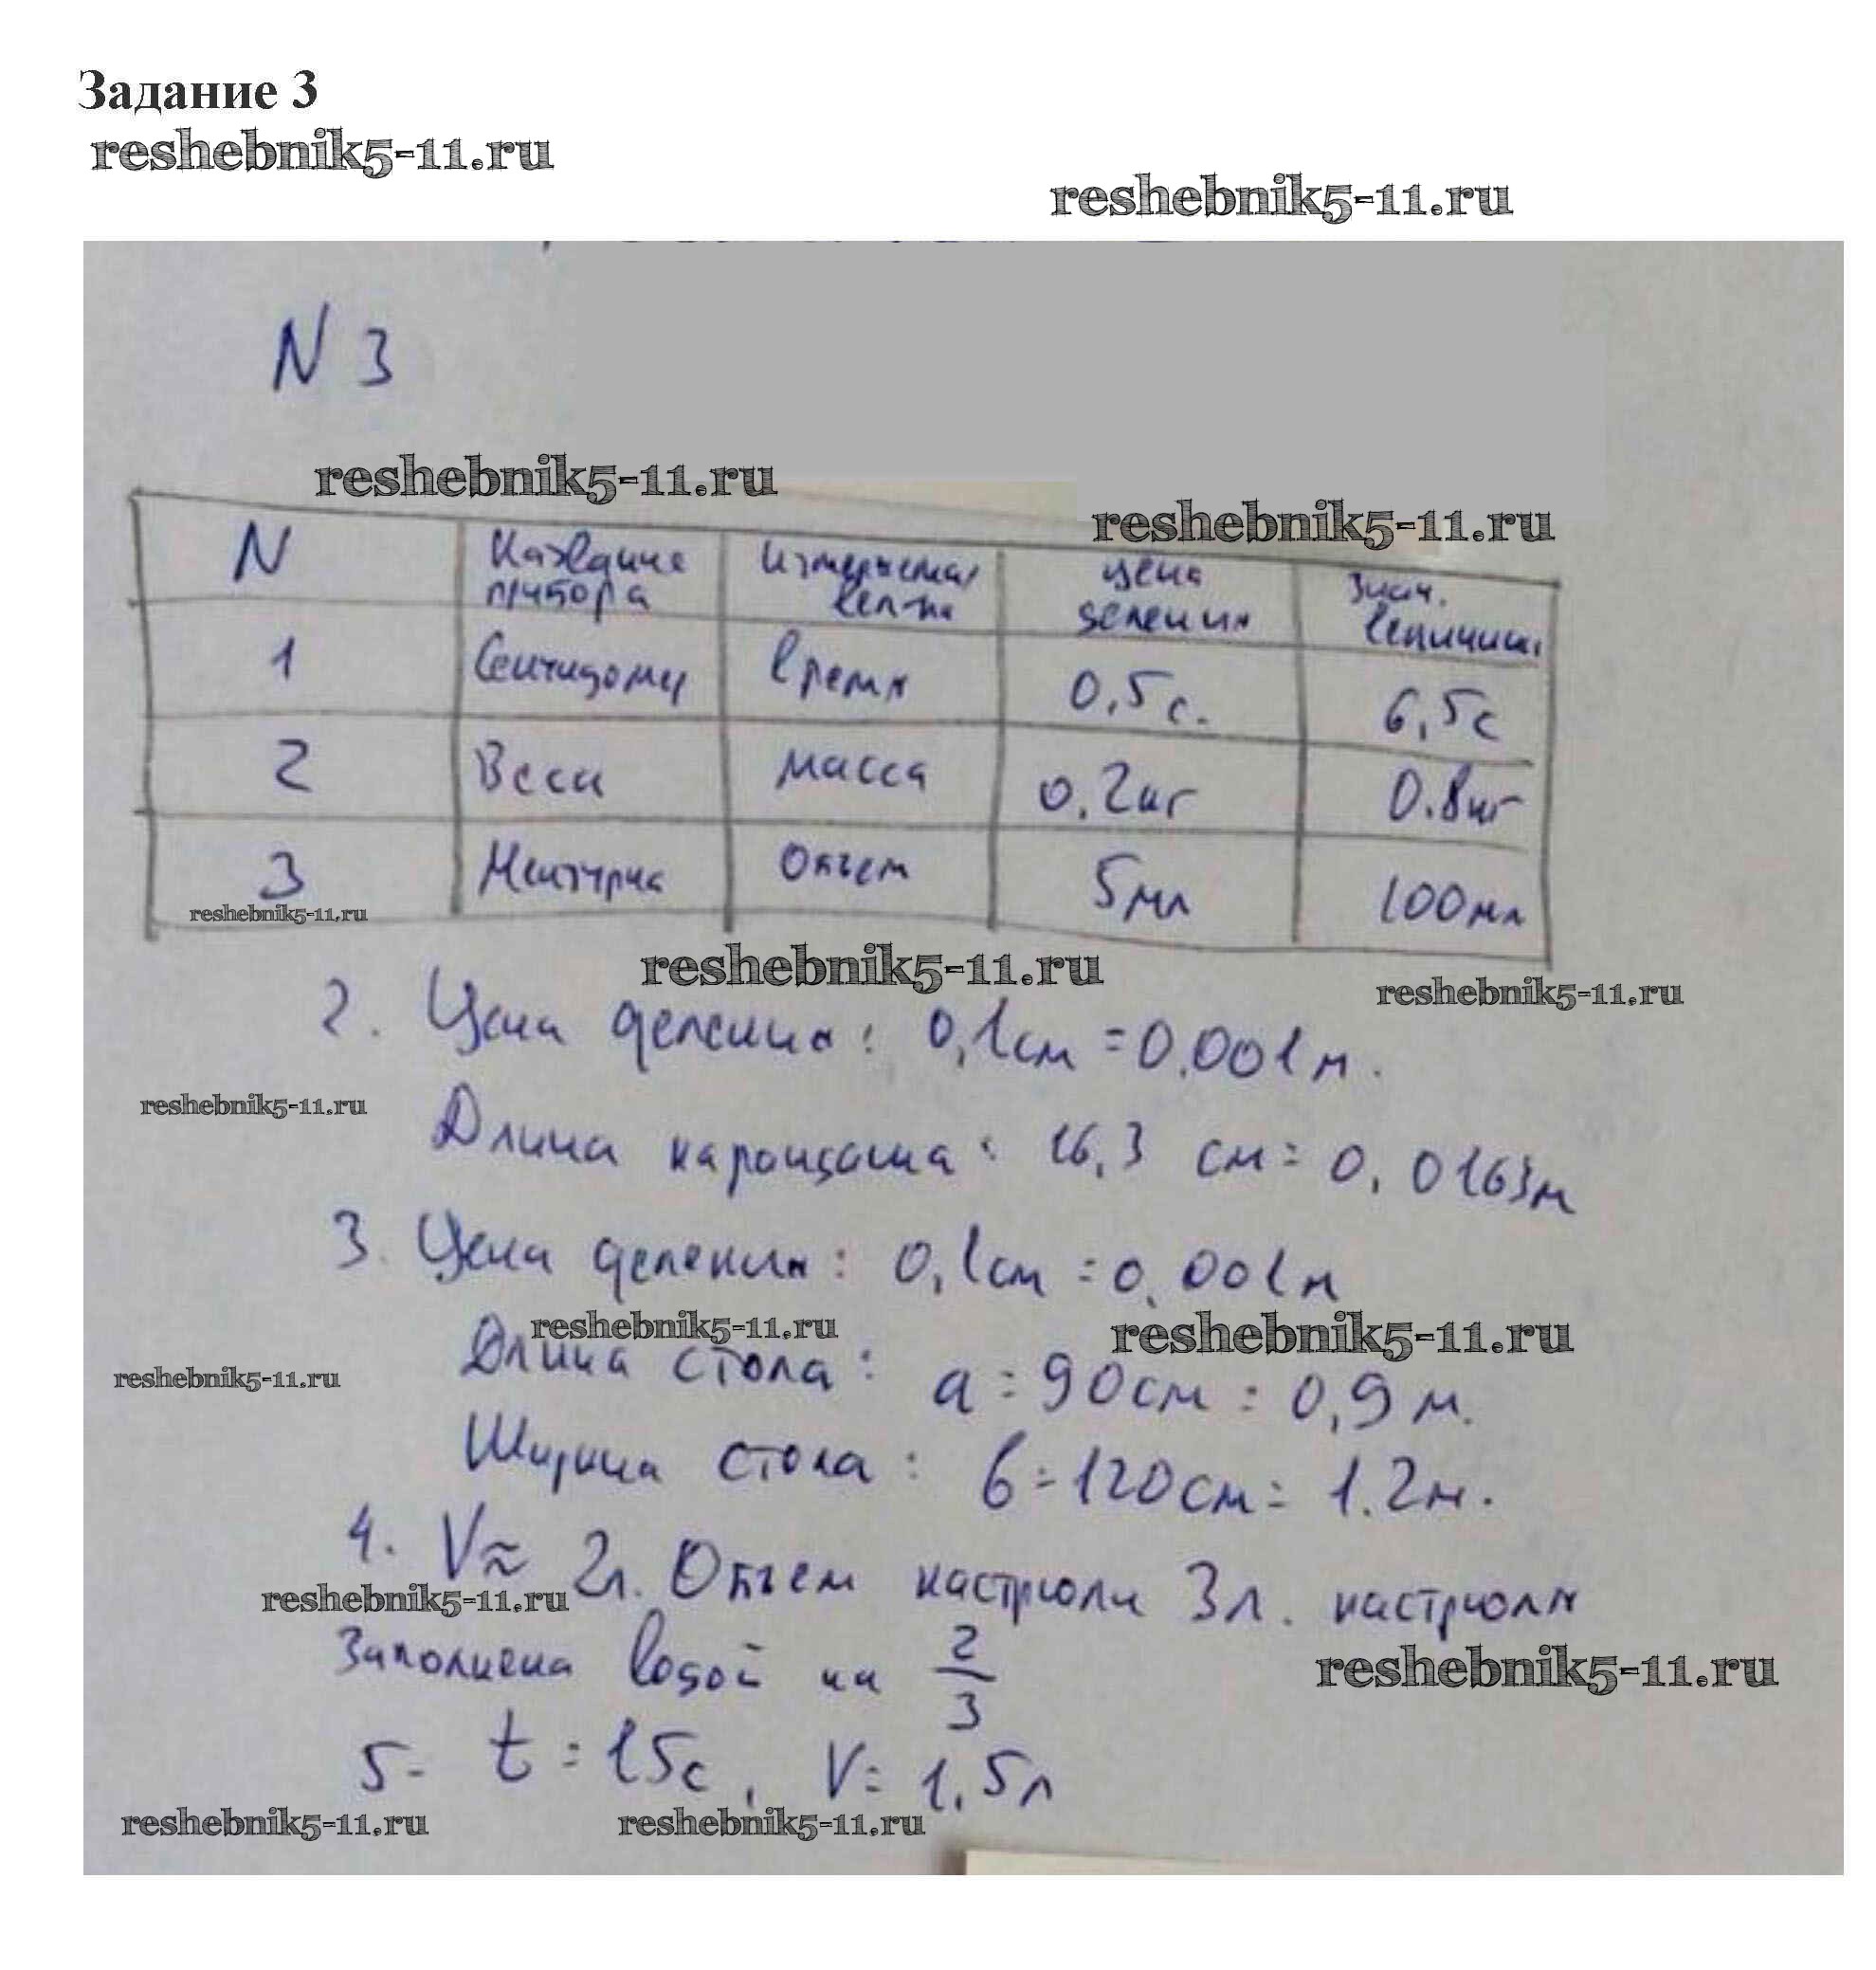 Задание 3
reshebnik5-11.ru
reshebnik5-11.ru
N 3
reshebnik5-11.ru
reshebnik5-11.ru
N Название прибора Измеряемая вел-на цена деления Знач. величины
1 Секундомер время 0,5 с. 6,5 с
2 Весы масса 0,2 кг 0.8 кг
3 Мензурка Объем 5 мл 100 мл
reshebnik5-11.ru
reshebnik5-11.ru
reshebnik5-11.ru
2. Цена деления: 0,1 см = 0.001 м.
reshebnik5-11.ru
Длина карандаша: 16,3 см = 0,0163 м
3. Цена деления: 0,1 см = 0,001 м
reshebnik5-11.ru
reshebnik5-11.ru
reshebnik5-11.ru
Длина стола: a = 90 см = 0,9 м.
Ширина стола: b = 120 см = 1.2 м.
4. V ≈ 2 л. Объем кастрюли 3 л. кастрюля
reshebnik5-11.ru
заполнена водой на 2/3
reshebnik5-11.ru
5- t = 15 с, V = 1,5 л
reshebnik5-11.ru
reshebnik5-11.ru